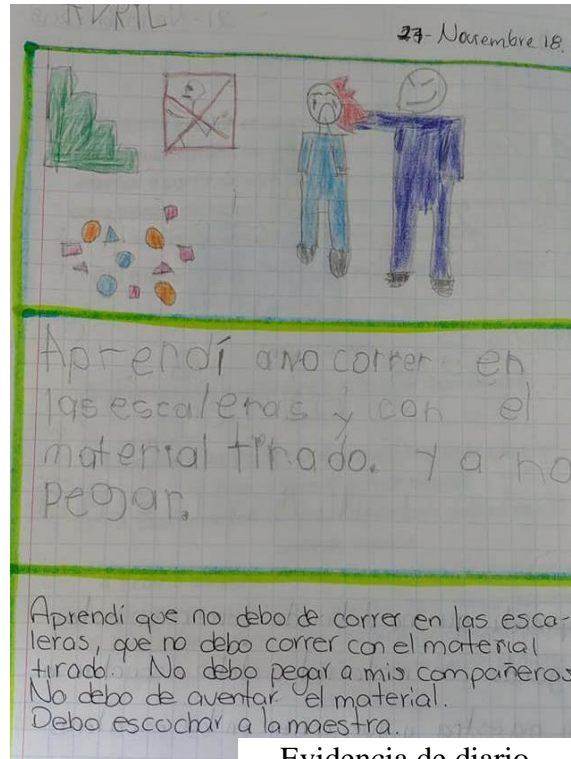 AVRIL
27-Noviembre 18.
Aprendí a no correr en
las escaleras y con el
material tirado. Y a no
pegar.
Aprendí que no debo de correr en las esca-
leras, que no debo correr con el material
tirado. No debo pegar a mis compañeros
No debo de aventar el material.
Debo escochar a la maestra.
Evidencia de diario